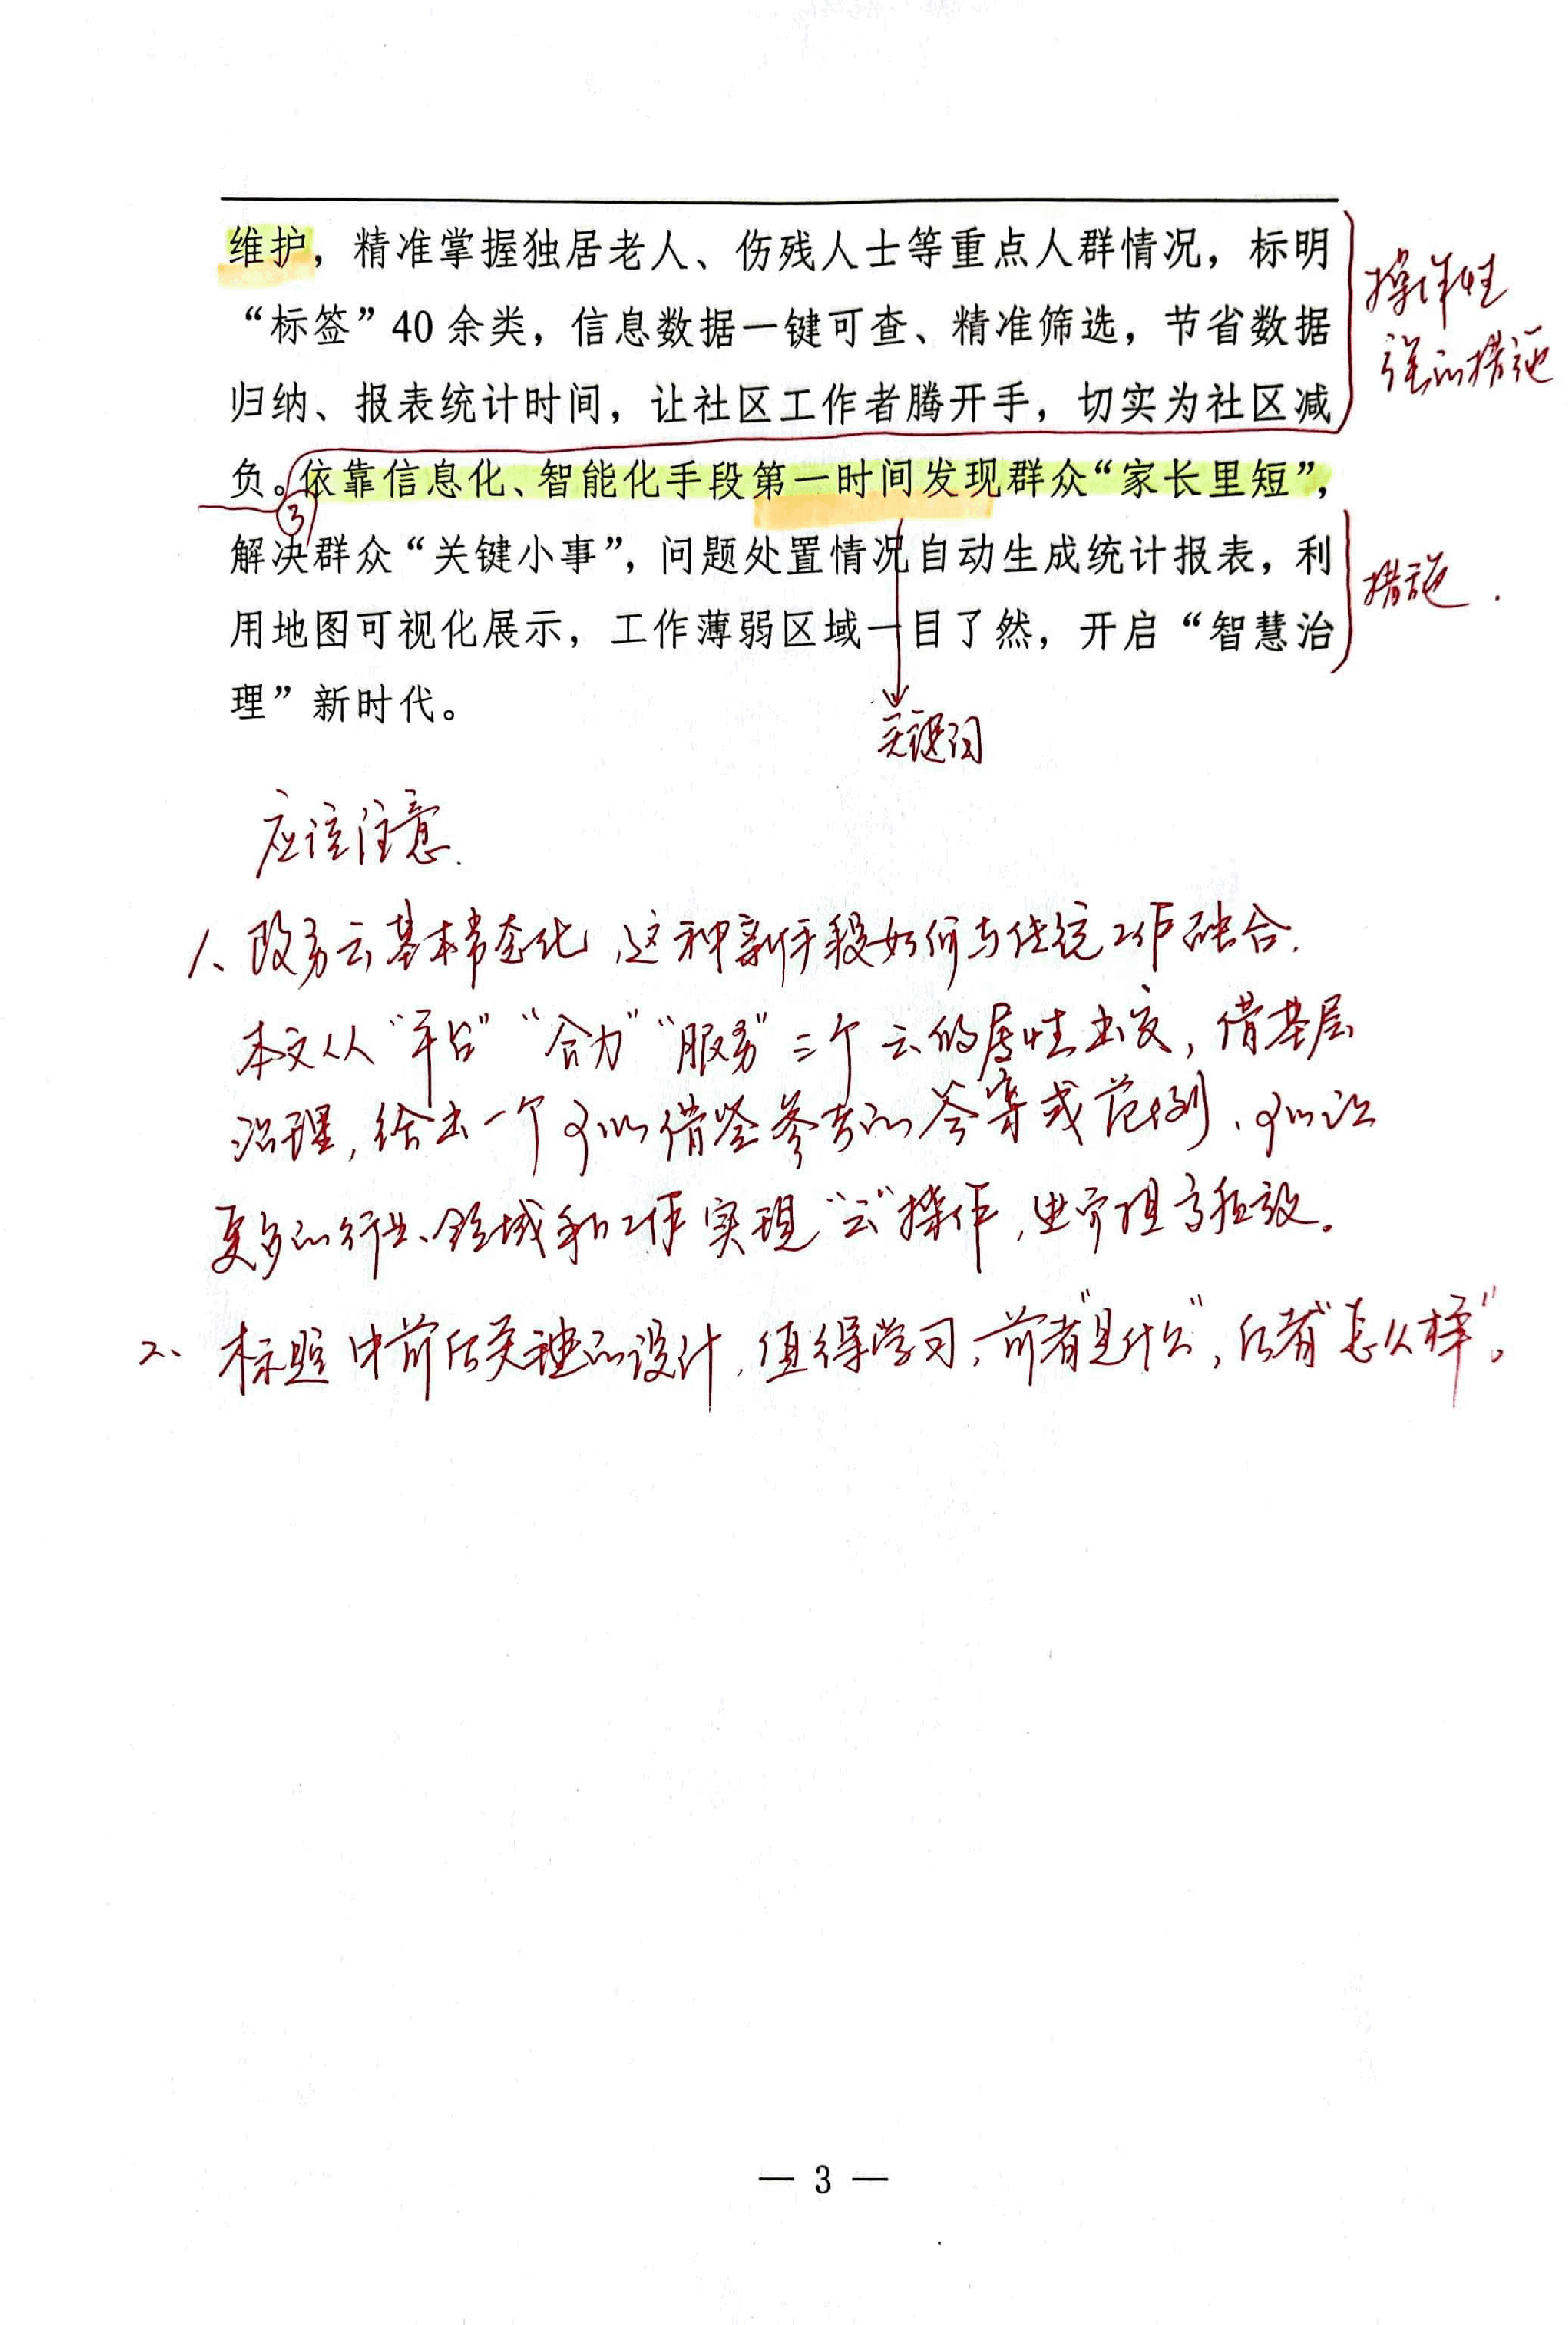 维护，精准掌握独居老人、伤残人士等重点人群情况，标明
“标签”40余类，信息数据一键可查、精准筛选，节省数据
归纳、报表统计时间，让社区工作者腾开手，切实为社区减
操作性
强的措施
负。依靠信息化、智能化手段第一时间发现群众“家长里短”，
③
解决群众“关键小事”，问题处置情况自动生成统计报表，利
用地图可视化展示，工作薄弱区域一目了然，开启“智慧治
理”新时代。
措施.
关键词
应该注意.
1、政务云基本常态化，这种新手段如何与传统工作融合.
本文从“平台”“合力”“服务”三个云的属性出发，借基层
治理，给出一个可以借鉴参考的答案或范例、可以让
更多的行业、领域和工作实现“云”操作，
2、标题中前后关键的设计，值得学习，前者“是什么”，后者“怎么样”。
— 3 —